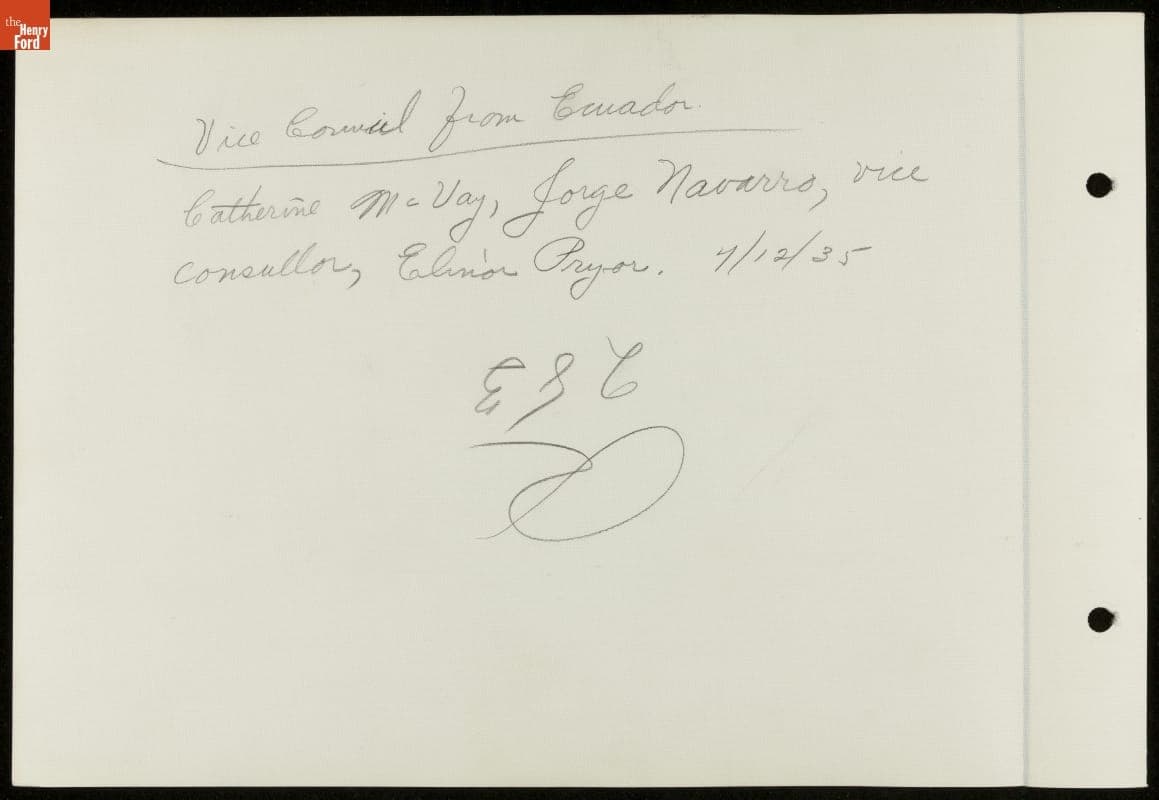 the
Henry
Ford
Vice Council from Ecuador.
Catherine McVay, Jorge Navarro, vice
consullor, Elinor Pryor. 7/12/35